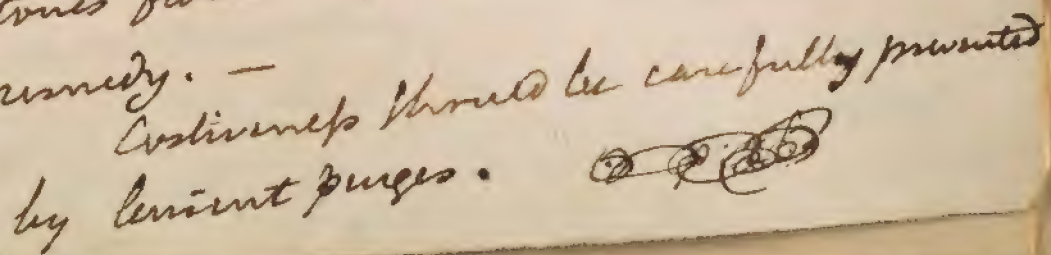 remedy. —
Costiveness should be carefully prevented
by lenient purges.